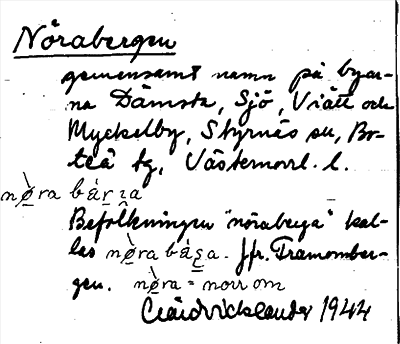 Nörabergen
gemensamt namn på byar-
na Dämsta, Sjö, Viätt och
Myckelby, Styrnäs sn, Bo-
teå tg, Västernorrl. l.
nø̀ra bárʒa
Befolkningen "nöraberga" kal-
las nø̀ra bárʒa. Jfr. Tramomber-
gen. nø̀ra = norr om
1944